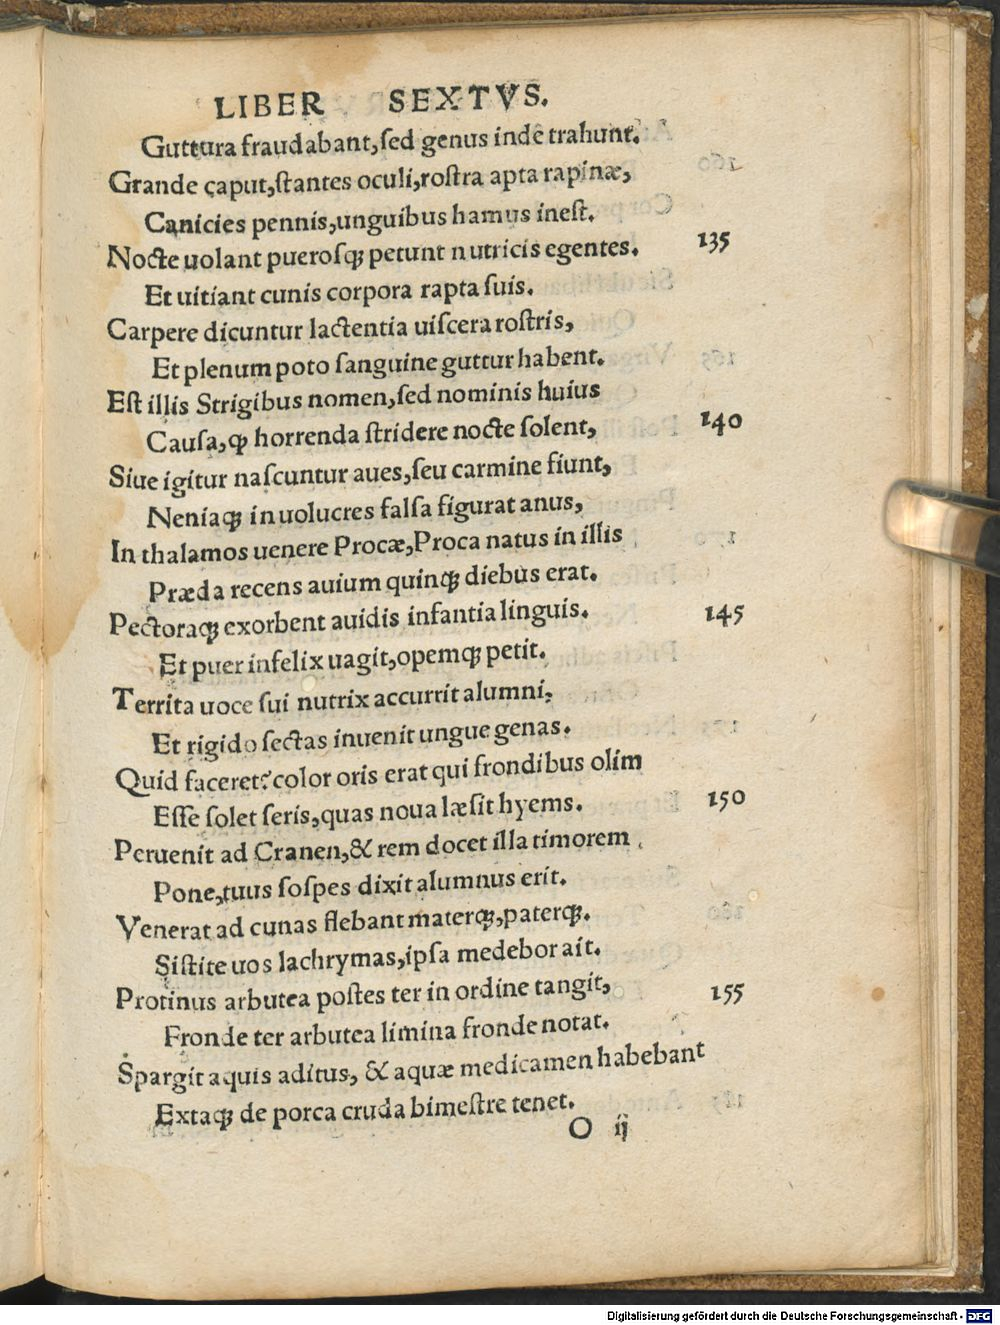 LIBER SEXTVS.
Guttura fraudabant,sed genus indē trahunt.
Grande caput,ſtantes oculi,roſtra apta rapinæ,
Canicies pennis,unguibus hamus ineſt.
135
Nocte uolant pueroſqꝫ petunt nutricis egentes.
Et uitiant cunis corpora rapta ſuis.
Carpere dicuntur lactentia uiſcera roſtris,
Et plenum poto ſanguine guttur habent.
Eſt illis Strigibus nomen,ſed nominis huius
140
Cauſa,ꝙ horrenda ſtridere nocte ſolent,
Siue igitur naſcuntur aues,ſeu carmine fiunt,
Neniaqꝫ in uolucres falſa figurat anus,
In thalamos uenere Procæ,Proca natus in illis
Præda recens auium quinqꝫ diebus erat.
145
Pectoraqꝫ exorbent auidis infantia linguis.
Et puer infelix uagit,opemqꝫ petit.
Territa uoce ſui nutrix accurrit alumni,
Et rigido ſectas inuenit ungue genas.
Quid faceret?color oris erat qui frondibus olim
150
Eſſe ſolet ſeris,quas noua læſit hyems.
Peruenit ad Cranen,& rem docet illa timorem
Pone,tuus ſoſpes dixit alumnus erit.
Venerat ad cunas flebant materqꝫ,paterqꝫ.
Siſtite uos lachrymas,ipſa medebor ait.
155
Protinus arbutea poſtes ter in ordine tangit,
Fronde ter arbutea limina fronde notat.
Spargit aquis aditus, & aquæ medicamen habebant
Extaqꝫ de porca cruda bimeſtre tenet.
O ij
Digitalisierung gefördert durch die Deutsche Forschungsgemeinschaft - DFG